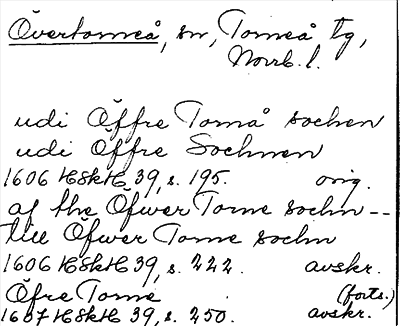 Övertorneå, sn, Torneå tg,
Norrb. l.
udi Öffre Tornå sochen
udi Öffre Sochnen
1606 HSkH 39, s. 195. orig.
af the Öfwer Torne sochn --
till Öfwer Torne sochn
1606 HSkH 39, s. 222. avskr.
Öfre Torne (forts.)
1607 HSkH 39, s. 250. avskr.